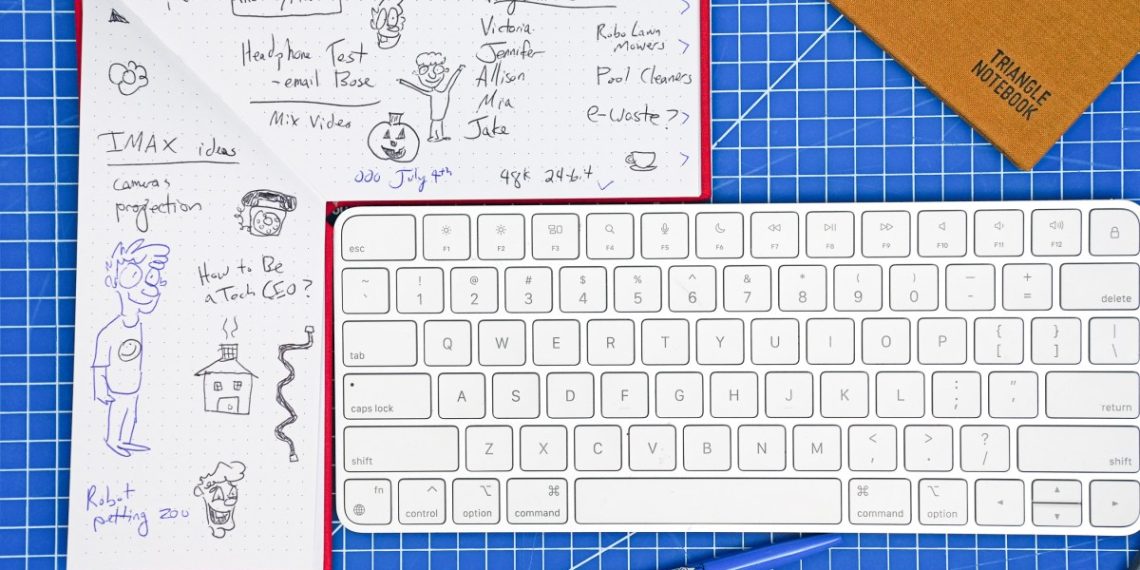 Headphone Test
- email Bose
Mix Video
Victoria
Jennifer
Allison
Mia
Jake
Robo Lawn
Mowers >
Pool Cleaners
e-waste? >
>
July 4th
48k 24-6.4
IMAX ideas
cameras
projection
How to Be
a Tech CEO?
Robot
petting zoo
TRIANGLE
NOTEBOOK
esc F1 F2 F3 F4 F5 F6 F7 F8 F9 F10 F11 F12
~ ! @ # $ % ^ & * ( ) — +
` 1 2 3 4 5 6 7 8 9 0 - = delete
tab Q W E R T Y U I O P { [ } ] | \
caps lock A S D F G H J K L : ; " ' return
shift Z X C V B N M < , > . ? / shift
fn control option command command option